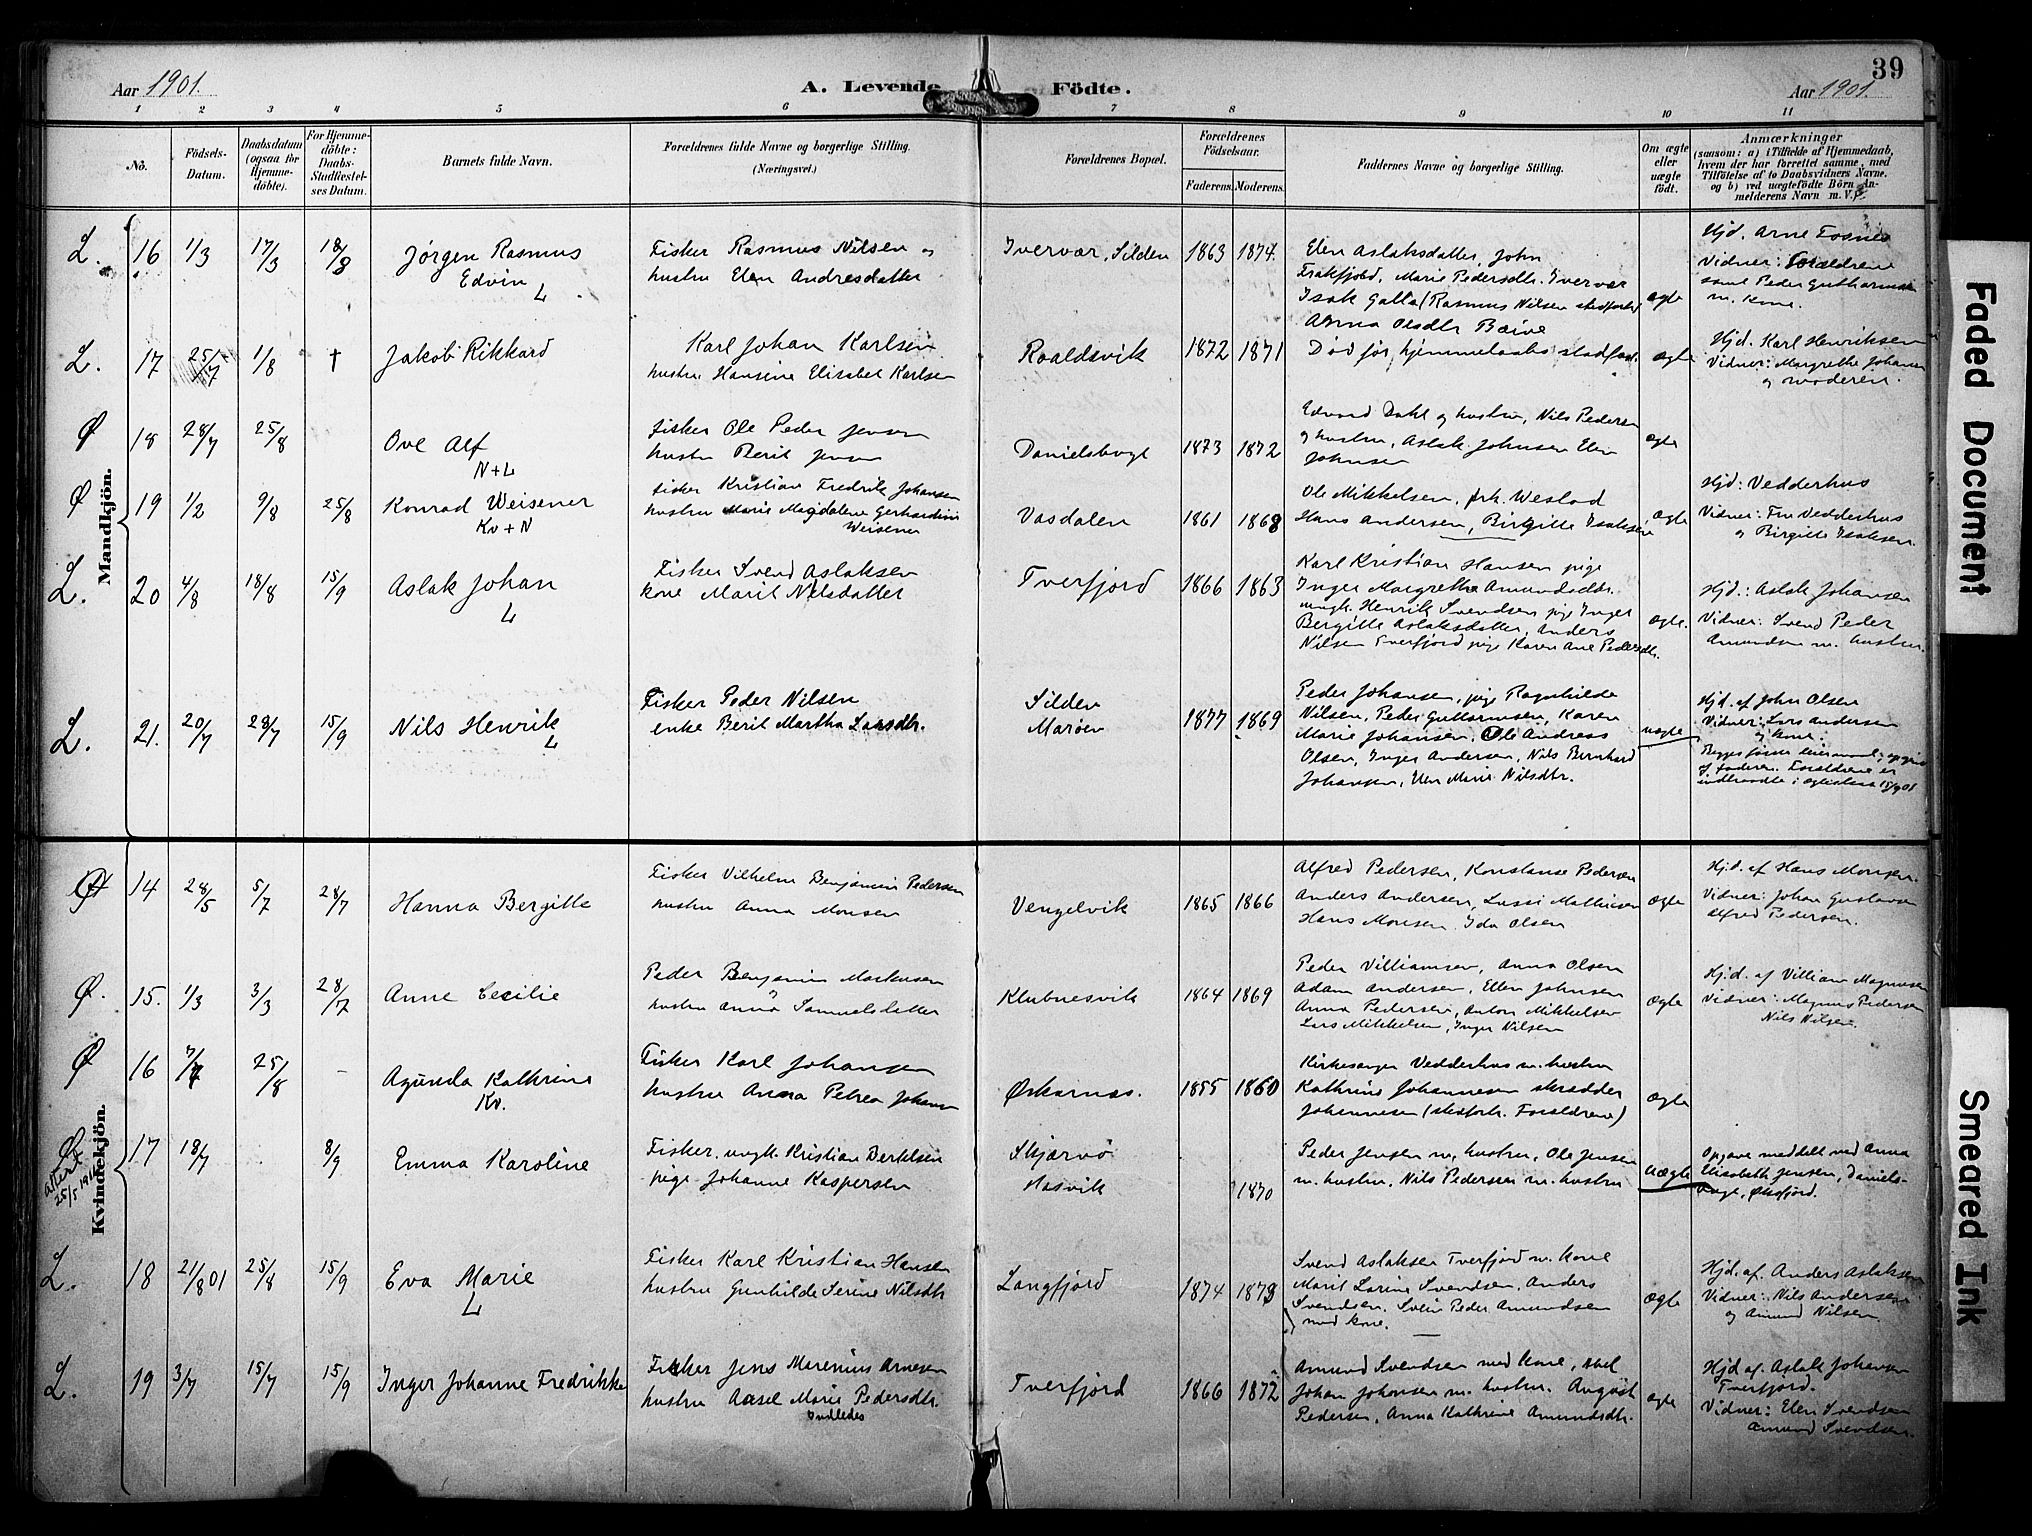 39
Aar 1901.
A. Levende Födte.
Aar 1901.
1 2 3 4 5 6 7 8 9 10 11
No.
Födsels-Datum.
Daabsdatum (ogsaa for Hjemme-döbte).
For Hjemme-döbte: Daabs-Stadfæstel-ses Datum.
Barnets fulde Navn.
Forældrenes fulde Navne og borgerlige Stilling. (Næringsvei.)
Forældrenes Bopæl.
Forældrenes Födselsaar.
Faderens. Moderens.
Faddernes Navne og borgerlige Stilling.
Om ægte eller uægte födt.
Anmærkninger
(saasom: a) i Tilfælde af Hjemmedaab,
hvem der har forrettet samme, med
Tilföielse af to Daabsvidners Navne.
og b) ved uægtefödte Börn An-
melderens Navn m. V.
Mandkjön.
L. 16 1/3 17/3 18/8 Jørgen Rasmus
Edvin
L
Fisker Rasmus Nilsen og
hustru Elen Andresdatter
Ivervær, Silden 1863 1874.
Elen Aslaksdatter, John
Frakfjord, Marie Pedersdtr. Iversvær
Isak Galla (Rasmus Nilsen stedfortr.)
Anna Olsdtr Barive
ægte
Hjd. Arne Tosnes
Vidner: Forældrene
samt Peder Guttormsen
m. kone.
L. 17 25/7 1/8 † Jakob Rikkard
Karl Johan Karlsen
hustru Hansine Elisabet Karlsen
Roaldsvik 1872 1871
Død før hjemmedaabs stadfæst.
ægte
Hjd. Karl Henriksen
Vidner: Margrethe Johansen
og moderen.
Ø 18 28/7 25/8 Ove Alf
N+L
fisker Ole Peder Jensen
hustru Berit Jensen
Danielsbugt 1873 1872
Edvard Dahl og hustru, Nils Pedersen
og hustru, Aslak Johnsen Elen
Johnsen
ægte
Ø 19 1/2 9/8 25/8 Konrad Weisener
Kv+N
fisker Kristian Fredrik Johansen
hustru Marie Magdalene Gerhardine
Weisener
Vasdalen 1861 1868
Ole Mikkelsen, frk. Weslod
Hans Andersen, Birgitte Isaksen
ægte
Hjd: Vedderhus
Vidner: Fru Vedderhus
og Birgitte Isaksen.
L. 20 4/8 18/8 15/9 Aslak Johan
L
Fisker Svend Aslaksen
kone Marit Nilsdatter
Tverfjord 1866 1863
Karl Kristian Hansen pige
Inger Margrethe Amundsdtr.
ungk. Henrik Svendsen pige Inger
Bergitte Aslaksdatter, Anders
Nilsen Tverfjord pige Karen Ane Pedersdtr.
ægte.
Hjd.: Aslak Johansen
Vidner: Svend Peder
Amundsen m. hustru.
L. 21. 20/7 28/7 15/9 Nils Henrik
L
Fisker Peder Nilsen
enke Berit Martha Larsdtr.
Silden
Marøen
1877 1869
Peder Johansen, pige Ragnhilde
Nilsen, Peder Guttormsen, Karen
Marie Johansen, Ole Andreas
Olsen, Inger Andersen, Nils Bernhard
Johansen, Elen Marie Nilsdtr.
uægte
Hjd. af John Olsen
Vidner: Lars Andersen
og kone.
Begges første leiermaal; opgivet
af faderen. Forældrene er
indtraadte i ægteskab 15/9 01
Kvindekjön.
Ø 14 28/5 5/7 28/7 Hanna Bergitte
Fisker Vilhelm Benjamin Pedersen
hustru Anna Monsen
Vengelvik 1865 1866
Alfred Pedersen, Konstanse Pedersen
Anders Andersen, Lussi Mathisen
Hans Monsen Ida Olsen
ægte
Hj.d. af Hans Monsen.
Vidner: Johan Gustavsen
Alfred Pedersen.
Ø. 15. 1/3 3/3 28/7 Anne Cecilie
Peder Benjamin Markusen
hustru Anna Samuelsdatter
Klubnesvik 1864 1869
Peder Villiamsen, Anna Olsen
Adam Andersen, Ellen Johnsen
Anna Pedersen, Anton Mikkelsen
Lars Mikkelsen, Inger Nilsen
ægte
Hj.d. af Villiam Magnussen
Vidner: Magnus Pedersen
Nils Nilsen.
Ø 16 7/7 25/8 - Agunda Kathrine
Kv.
Fisker Karl Johansen
hustru Anna Petrea Johansen
Øskarnæs. 1855 1860
Kirkesanger Vedderhus m. hustru
Kathrine Johannesen skrædder
Johannesen (stedfortr. Forældrene)
ægte
Ø 17 18/7 8/9 Emma Karoline
attest
25/5 1916
Fisker. ungk. Kristian Bertelsen
pige Johanne Kaspersen
Skjærvø
Hasvik
1870
Peder Jensen m. hustru, Ole Jensen
m. hustru, Nils Pedersen m. hustru
uægte
Opgave meddelt ved Anna
Elisabeth Jensen, Daniels-
bugt, Øksfjord.
L. 18 21/8 01 25/8 15/9 Eva Marie
L
Fisker Karl Kristian Hansen
hustru Gunhilde Serine Nilsdtr
Langfjord 1874 1873
Svend Aslaksen Tverfjord m. kone
Marit Larine Svendsen, Anders
Svendsen, Svein Peder Amundsen
med kone.
ægte
Hjd. af. Anders Aslaksen
Vidner: Nils Andersen
og Amund Nilsen.
L. 19 3/7 15/7 15/9 Inger Johanne Fredrikke
Fisker Jens Marenius Arnesen
hustru Aasel Marie Pedersdtr.
Indledes
Tverfjord 1866 1872
Amund Svendsen med kone,
Johan Johansen m. hustru. August
Pedersen, Anna Kathrine Amundsdtr.
ægte
Hjd af. Aslak Johansen
Tverfjord.
Vidner: Elen Svendsen
Amund Svendsen.
Faded Document
Smeared Ink